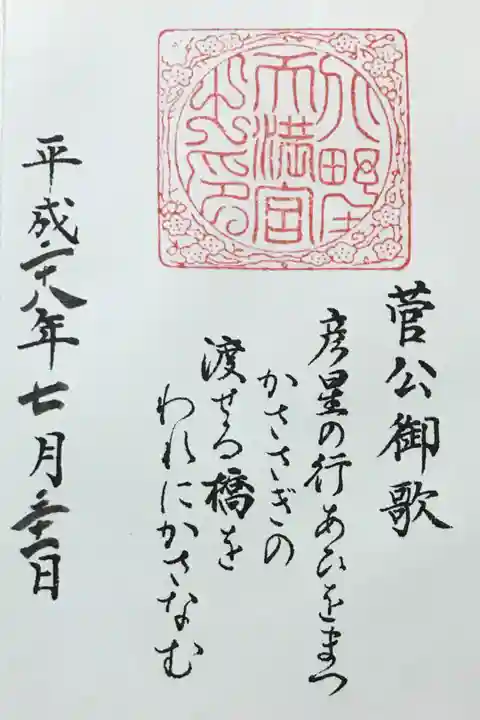 天満宮
之印
菅公御歌
彦星の行あひをまつ
かささぎの
渡せる橋を
われにかさなむ
平成二十八年七月三十一日